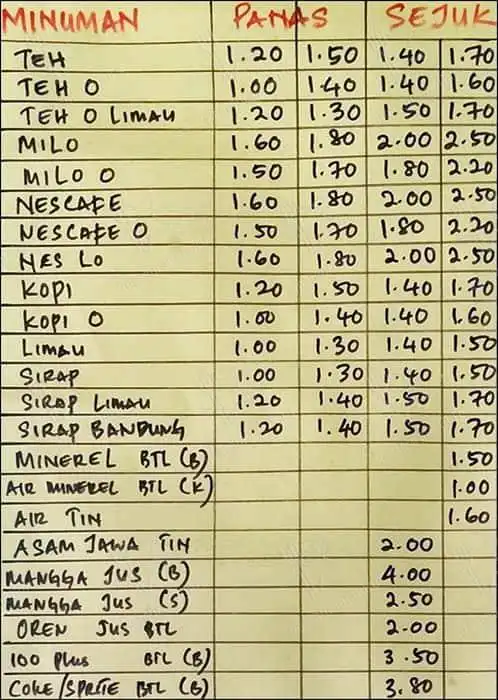 MINUMAN PANAS SEJUK
TEH 1.20 1.50 1.40 1.70
TEH O 1.00 1.40 1.40 1.60
TEH O LIMAU 1.20 1.30 1.50 1.70
MILO 1.60 1.80 2.00 2.50
MILO O 1.50 1.70 1.80 2.20
NESCAFE 1.60 1.80 2.00 2.50
NESCAFE O 1.50 1.70 1.80 2.20
NES LO 1.60 1.80 2.00 2.50
KOPI 1.20 1.50 1.40 1.70
KOPI O 1.00 1.40 1.40 1.60
LIMAU 1.00 1.30 1.40 1.50
SIRAP 1.00 1.30 1.40 1.50
SIRAP LIMAU 1.20 1.40 1.50 1.70
SIRAP BANDUNG 1.20 1.40 1.50 1.70
MINEREL BTL (B) 1.50
AIR MINEREL BTL (K) 1.00
AIR TIN 1.60
ASAM JAWA TIN 2.00
MANGGA JUS (B) 4.00
MANGGA JUS (S) 2.50
OREN JUS BTL 2.00
100 Plus BTL (B) 3.50
COKE/SPRITE BTL (B) 3.80